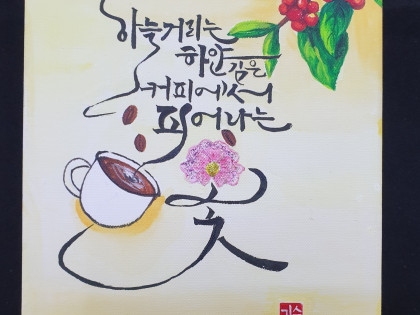 하늘거리는
하얀 김은
커피에서
피어나는
꽃